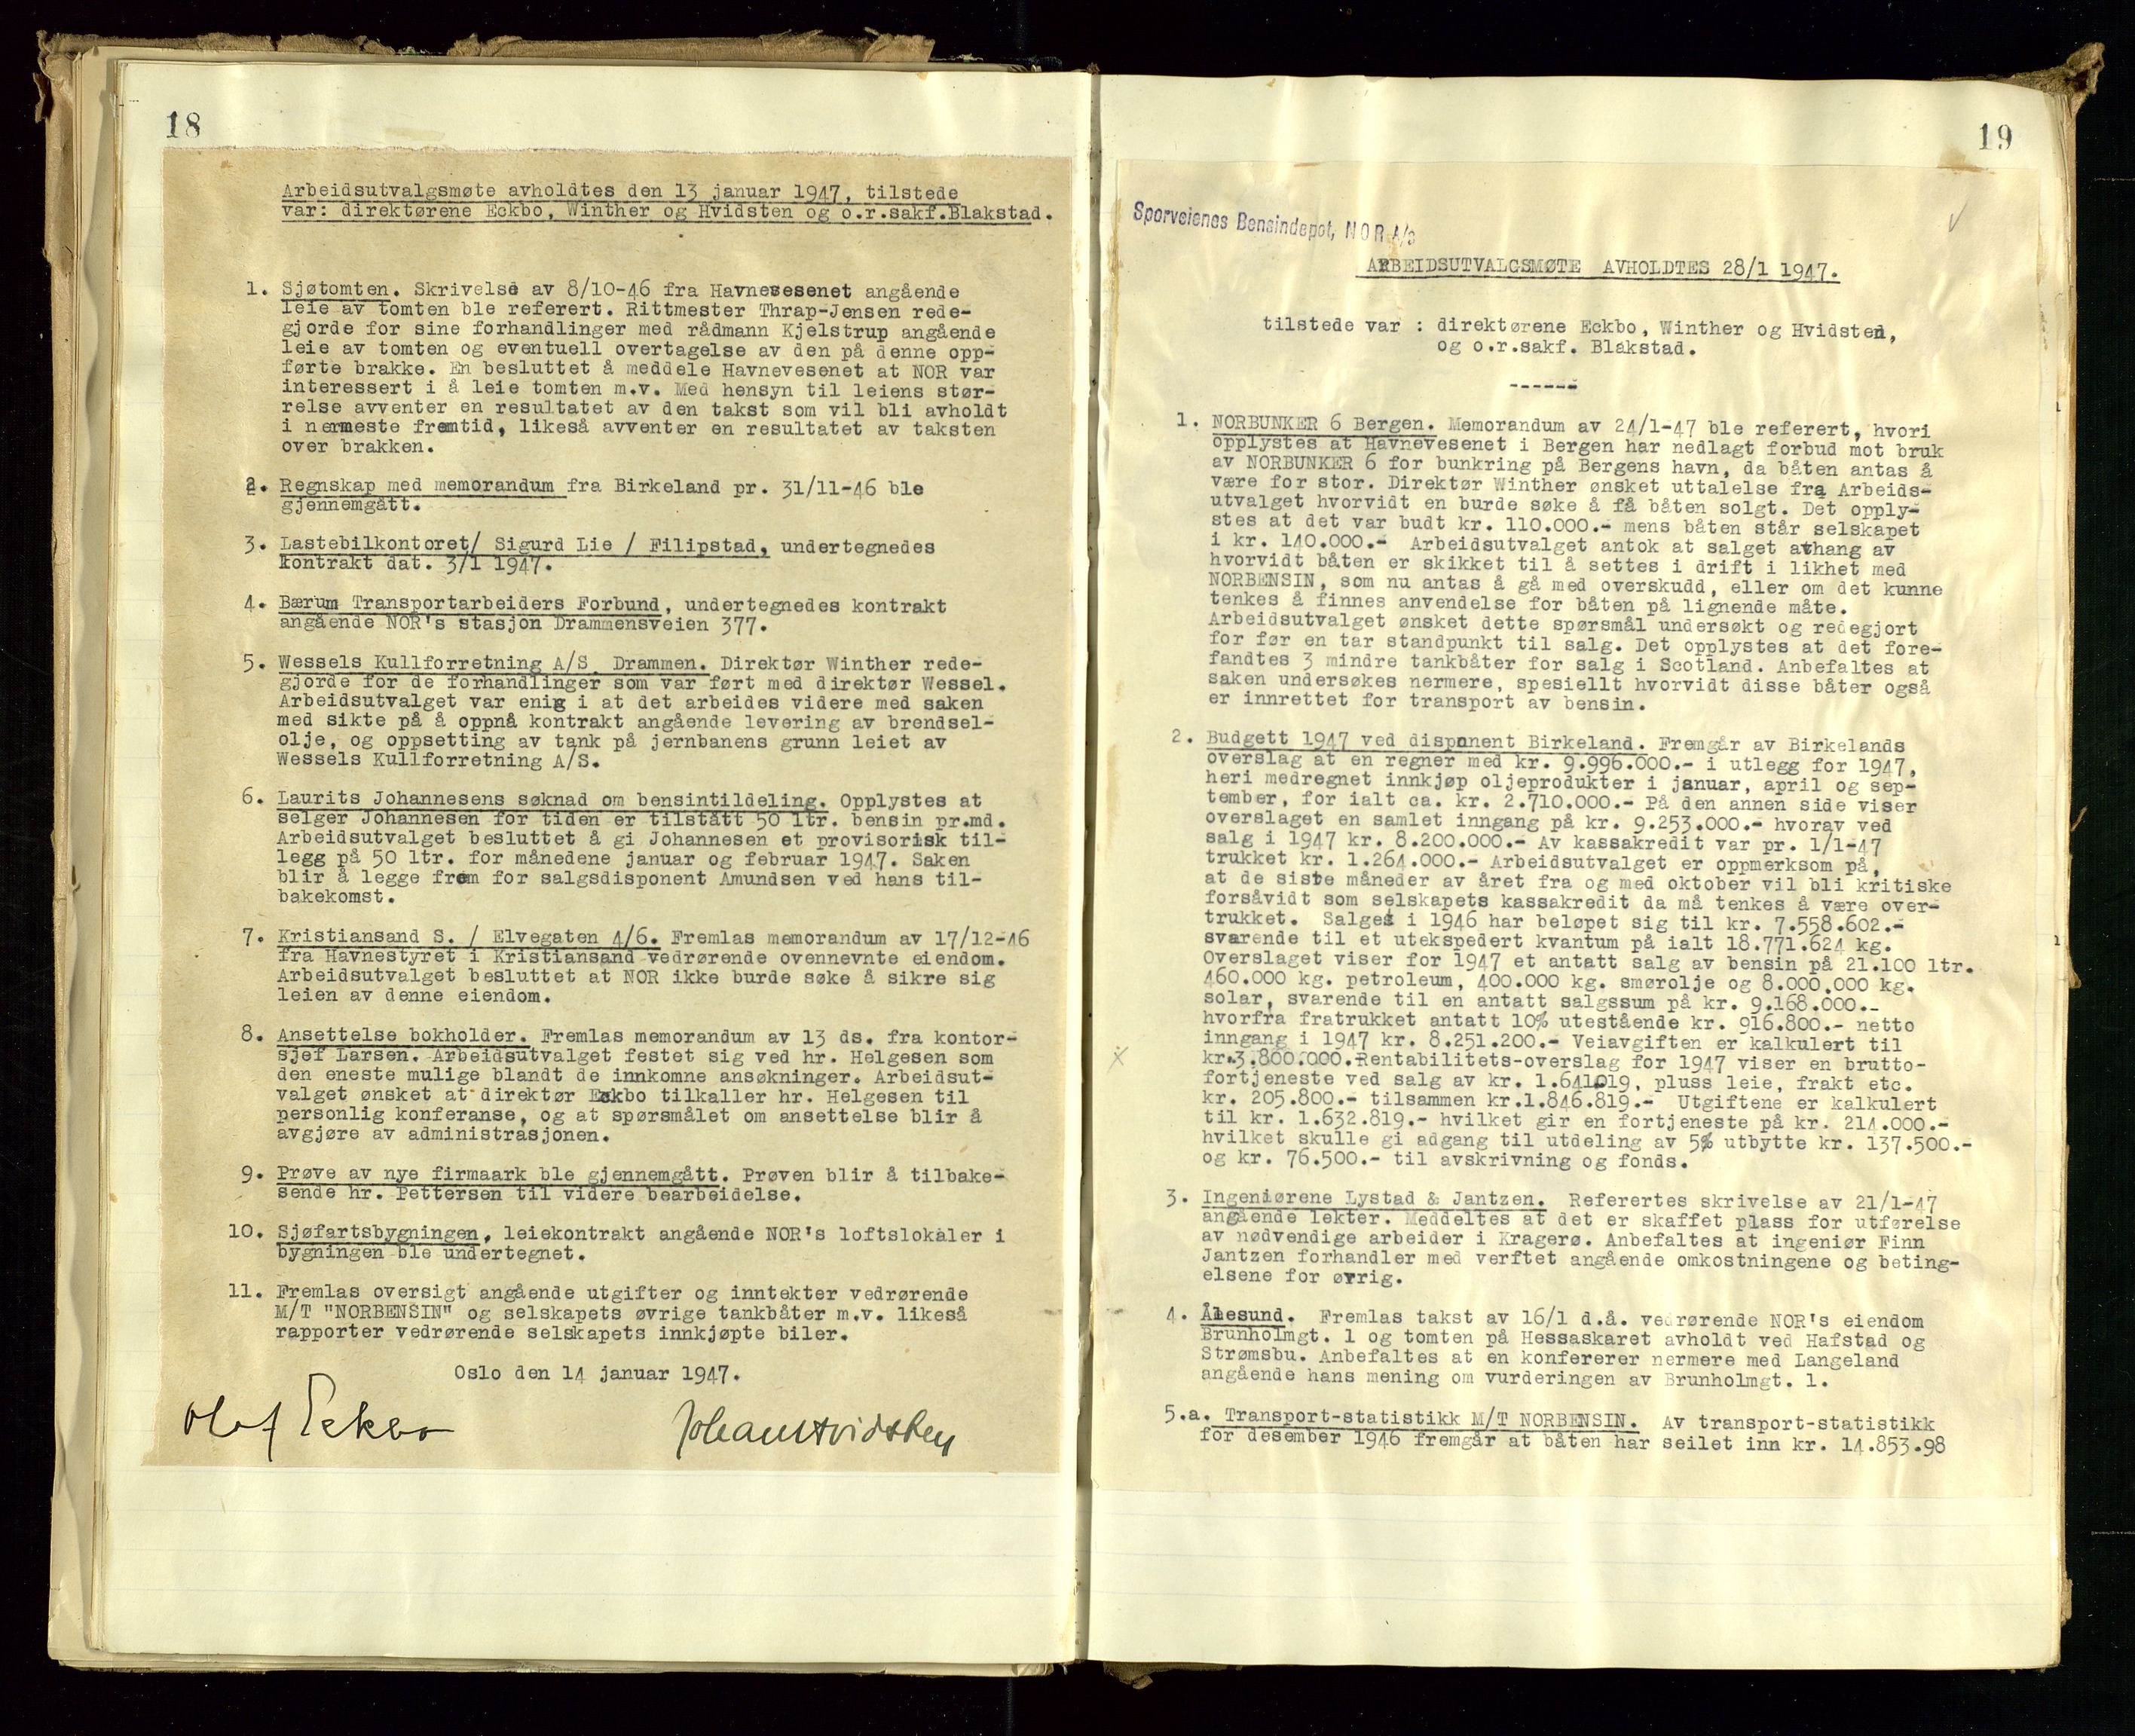 18
Arbeidsutvalgsmøte avholdtes den 13 januar 1947, tilstede
var: direktørene Eckbo, Winther og Hvidsten og o.r.sakf.Blakstad.
1. Sjøtomten. Skrivelse av 8/10-46 fra Havnevesenet angående
leie av tomten ble referert. Rittmester Thrap-Jensen rede-
gjorde for sine forhandlinger med rådmann Kjelstrup angående
leie av tomten og eventuell overtagelse av den på denne opp-
førte brakke. En besluttet å meddele Havnevesenet at NOR var
interessert i å leie tomten m.v. Med hensyn til leiens stør-
relse avventer en resultatet av den takst som vil bli avholdt
i nærmeste fremtid, likeså avventer en resultatet av taksten
over brakken.
2. Regnskap med memorandum fra Birkeland pr. 31/11-46 ble
gjennemgått.
3. Lastebilkontoret/ Sigurd Lie / Filipstad, undertegnedes
kontrakt dat. 3/1 1947.
4. Bærum Transportarbeiders Forbund, undertegnedes kontrakt
angående NOR's stasjon Drammensveien 377.
5. Wessels Kullforretning A/S, Drammen. Direktør Winther rede-
gjorde for de forhandlinger som var ført med direktør Wessel.
Arbeidsutvalget var enig i at det arbeides videre med saken
med sikte på å oppnå kontrakt angående levering av brendsel-
olje, og oppsetting av tank på jernbanens grunn leiet av
Wessels Kullforretning A/S.
6. Laurits Johannesens søknad om bensintildeling. Opplystes at
selger Johannesen for tiden er tilstått 50 ltr. bensin pr.md.
Arbeidsutvalget besluttet å gi Johannesen et provisorisk til-
legg på 50 ltr. for månedene januar og februar 1947. Saken
blir å legge frem for salgsdisponent Amundsen ved hans til-
bakekomst.
7. Kristiansand S. / Elvegaten 4/6. Fremlas memorandum av 17/12-46
fra Havnestyret i Kristiansand vedrørende ovennevnte eiendom.
Arbeidsutvalget besluttet at NOR ikke burde søke å sikre sig
leien av denne eiendom.
8. Ansettelse bokholder. Fremlas memorandum av 13 ds. fra kontor-
sjef Larsen. Arbeidsutvalget festet sig ved hr. Helgesen som
den eneste mulige blandt de innkomne ansøkninger. Arbeidsut-
valget ønsket at direktør Eckbo tilkaller hr. Helgesen til
personlig konferanse, og at spørsmålet om ansettelse blir å
avgjøre av administrasjonen.
9. Prøve av nye firmaark ble gjennemgått. Prøven blir å tilbake-
sende hr. Pettersen til videre bearbeidelse.
10. Sjøfartsbygningen, leiekontrakt angående NOR's loftslokaler i
bygningen ble undertegnet.
11. Fremlas oversigt angående utgifter og inntekter vedrørende
M/T "NORBENSIN" og selskapets øvrige tankbåter m.v. likeså
rapporter vedrørende selskapets innkjøpte biler.
Oslo den 14 januar 1947.
Olaf Eckbo Johan Hvidsten
19
Sporveienes Bensindepot, NOR A/s
ARBEIDSUTVALGSMØTE AVHOLDTES 28/1 1947.
tilstede var : direktørene Eckbo, Winther og Hvidsten,
og o.r.sakf. Blakstad.
------
1. NORBUNKER 6 Bergen. Memorandum av 24/1-47 ble referert, hvori
opplystes at Havnevesenet i Bergen har nedlagt forbud mot bruk
av NORBUNKER 6 for bunkring på Bergens havn, da båten antas å
være for stor. Direktør Winther ønsket uttalelse fra Arbeids-
utvalget hvorvidt en burde søke å få båten solgt. Det opply-
stes at det var budt kr. 110.000.- mens båten står selskapet
i kr. 140.000.- Arbeidsutvalget antok at salget avhang av
hvorvidt båten er skikket til å settes i drift i likhet med
NORBENSIN, som nu antas å gå med overskudd, eller om det kunne
tenkes å finnes anvendelse for båten på lignende måte.
Arbeidsutvalget ønsket dette spørsmål undersøkt og redegjort
for før en tar standpunkt til salg. Det opplystes at det fore-
fandtes 3 mindre tankbåter for salg i Scotland. Anbefaltes at
saken undersøkes nermere, spesiellt hvorvidt disse båter også
er innrettet for transport av bensin.
2. Budgett 1947 ved disponent Birkeland. Fremgår av Birkelands
overslag at en regner med kr. 9.996.000.- i utlegg for 1947,
heri medregnet innkjøp oljeprodukter i januar, april og sep-
tember, for ialt ca. kr. 2.710.000.- På den annen side viser
overslaget en samlet inngang på kr. 9.253.000.- hvorav ved
salg i 1947 kr. 8.200.000.- Av kassakredit var pr. 1/1-47
trukket kr. 1.264.000.- Arbeidsutvalget er oppmerksom på,
at de siste måneder av året fra og med oktober vil bli kritiske
forsåvidt som selskapets kassakredit da må tenkes å være over-
trukket. Salget i 1946 har beløpet sig til kr. 7.558.602.-
svarende til et utekspedert kvantum på ialt 18.771.624 kg.
Overslaget viser for 1947 et antatt salg av bensin på 21.100 ltr.
460.000 kg. petroleum, 400.000 kg. smørolje og 8.000.000 kg.
solar, svarende til en antatt salgssum på kr. 9.168.000.-
hvorfra fratrukket antatt 10% utestående kr. 916.800.- netto
inngang i 1947 kr. 8.251.200.- Veiavgiften er kalkulert til
kr.3.800.000.Rentabilitets-overslag for 1947 viser en brutto-
fortjeneste ved salg av kr. 1.641.019, pluss leie, frakt etc.
kr. 205.800.- tilsammen kr.1.846.819.- Utgiftene er kalkulert
til kr. 1.632.819.- hvilket gir en fortjeneste på kr. 214.000.-
hvilket skulle gi adgang til utdeling av 5% utbytte kr. 137.500.-
og kr. 76.500.- til avskrivning og fonds.
3. Ingeniørene Lystad & Jantzen. Referertes skrivelse av 21/1-47
angående lekter. Meddeltes at det er skaffet plass for utførelse
av nødvendige arbeider i Kragerø. Anbefaltes at ingeniør Finn
Jantzen forhandler med verftet angående omkostningene og beting-
elsene for øvrig.
4. Ålesund. Fremlas takst av 16/1 d.å. vedrørende NOR's eiendom
Brunholmgt. 1 og tomten på Hessaskaret avholdt ved Hafstad og
Strømsbu. Anbefaltes at en konfererer nermere med Langeland
angående hans mening om vurderingen av Brunholmgt. 1.
5.a. Transport-statistikk M/T NORBENSIN. Av transport-statistikk
for desember 1946 fremgår at båten har seilet inn kr. 14.853.98